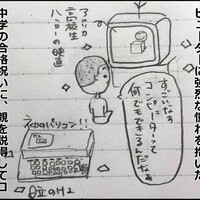 ピューターは強烈な憧れを抱いた
すごいなぁ
コンピーターって
何でもできるんだなぁ
アメリカ
高校生
ハッカーの映画
初のパソコン!!
日立のH2
中学の合格祝いに、親を説得してコ